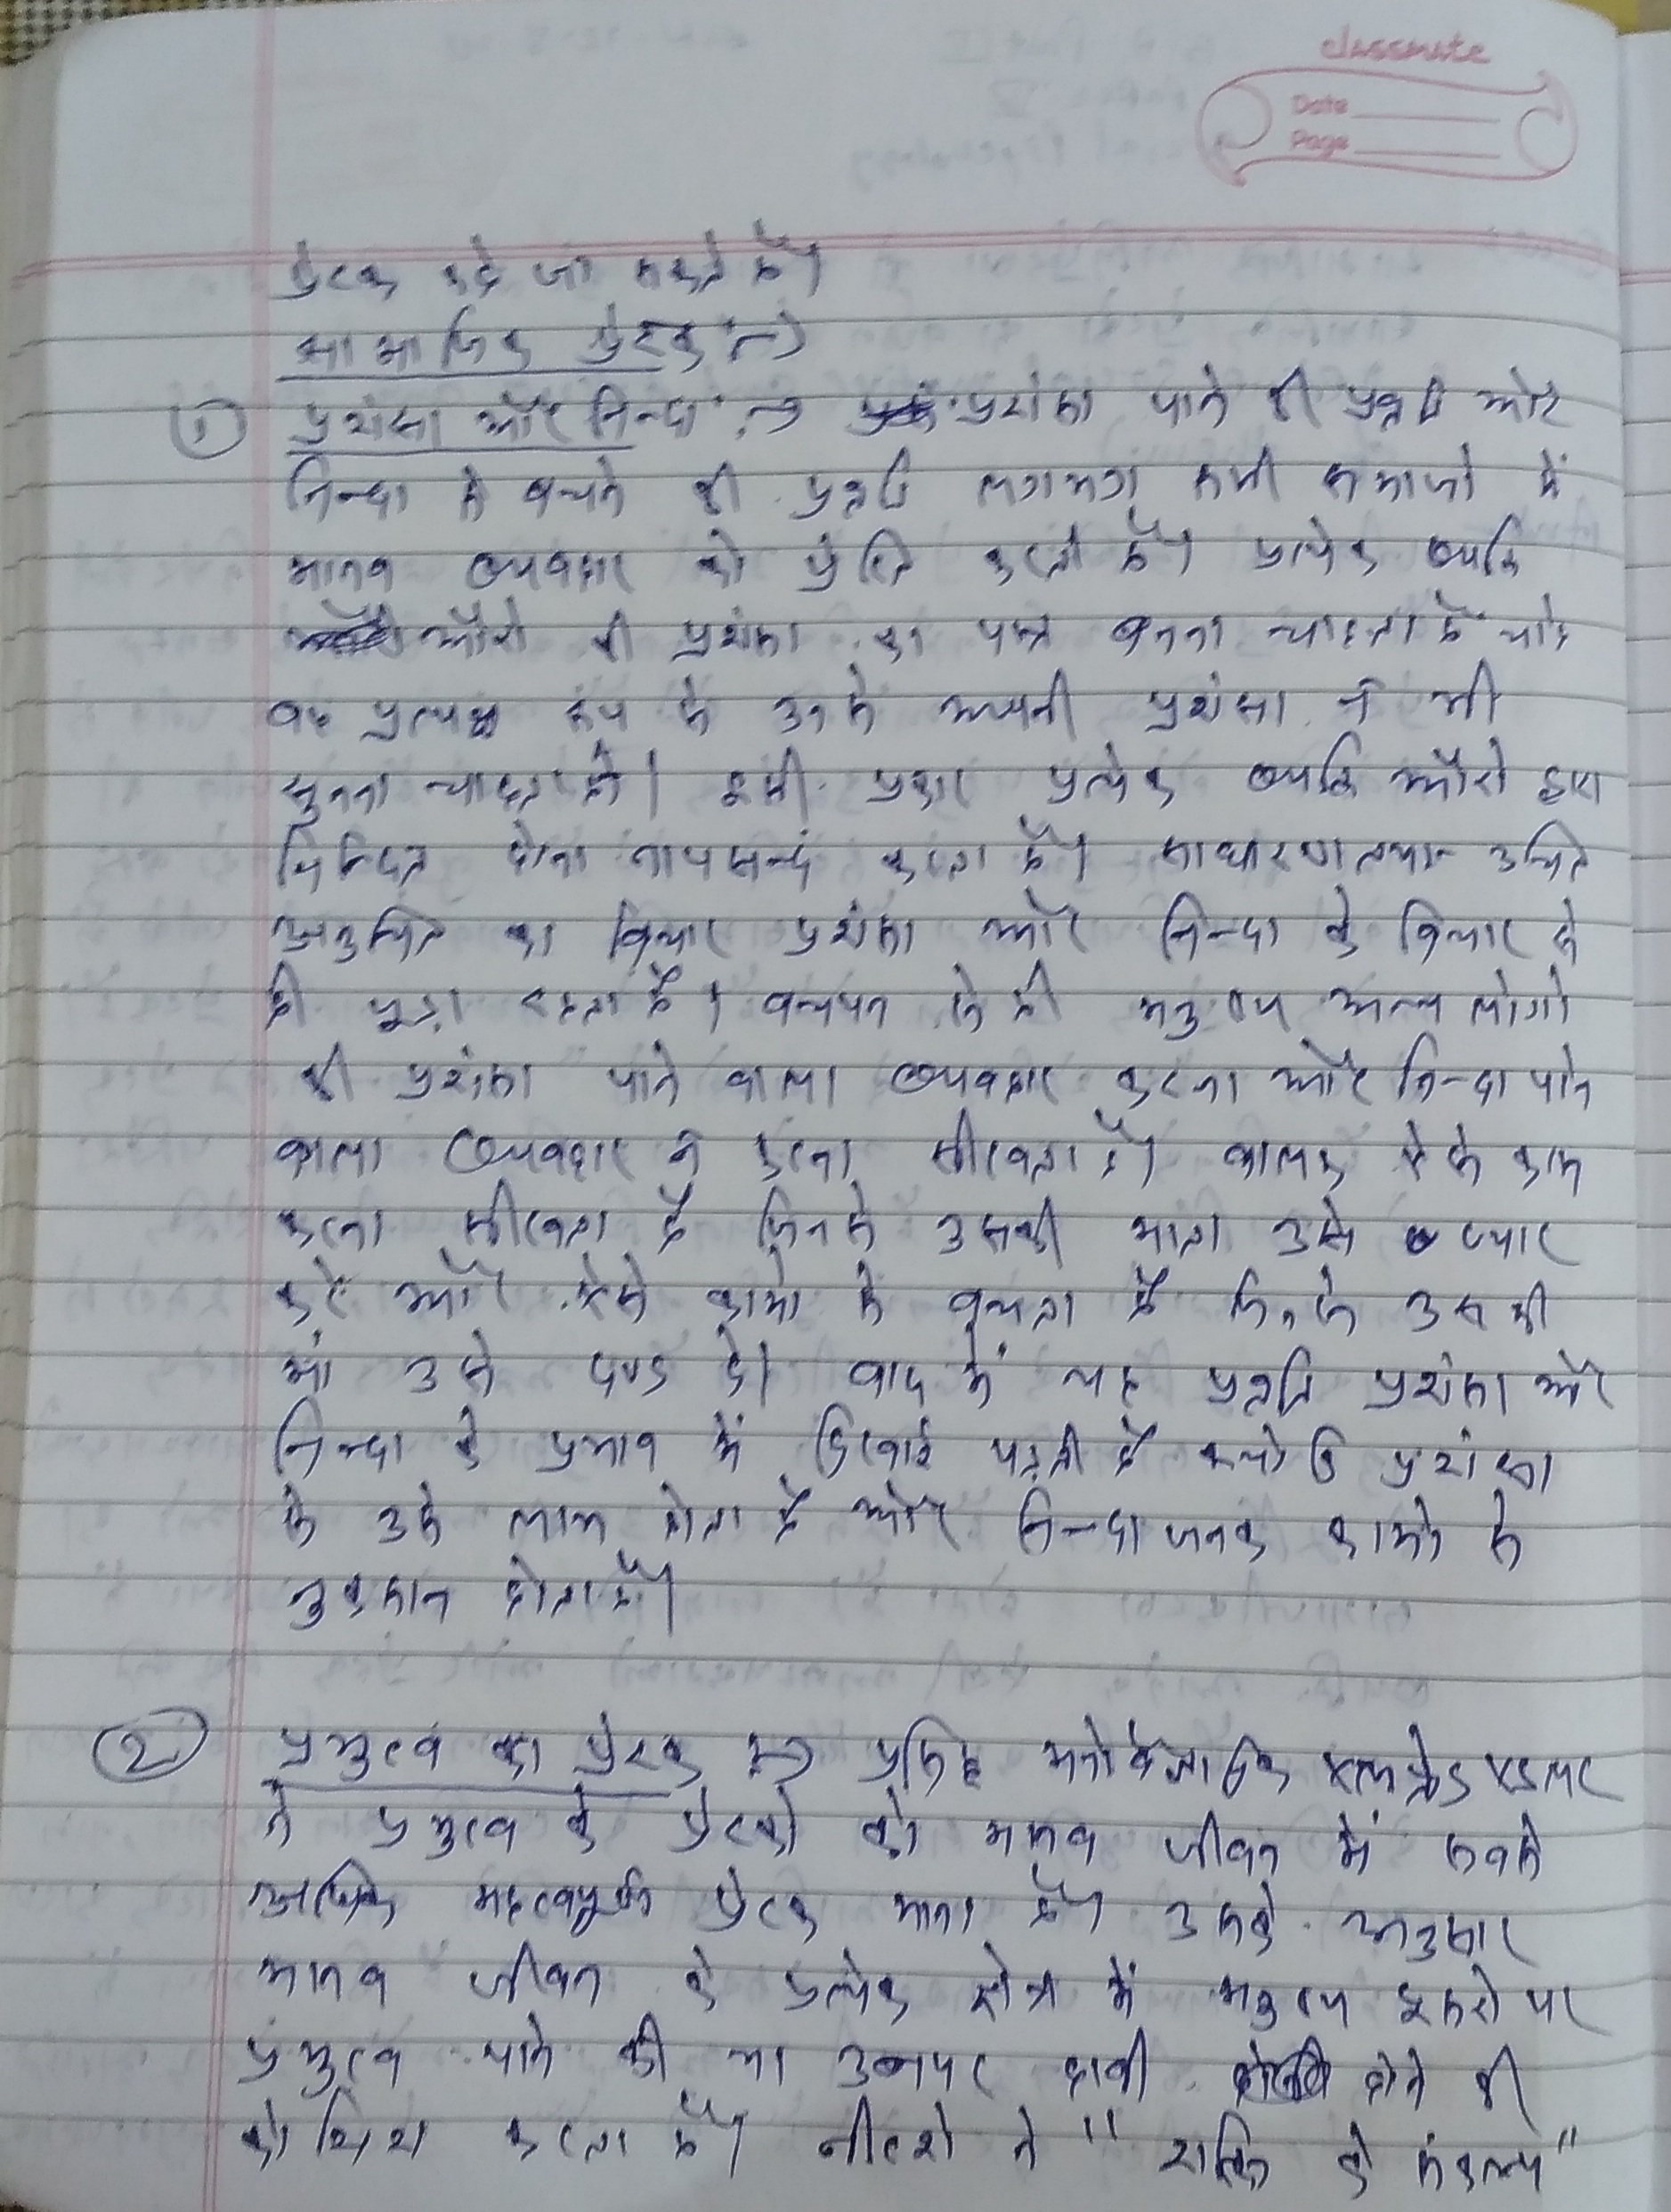 classmate
Date
Page
प्रेरक कहे जा सकते हैं।
सामाजिक प्रेरक :→
① प्रशंसा और निन्दा :→ प्रशंसा पाने की प्रवृति और
निन्दा से बचने की प्रवृति लगभग सभी समाजो में
मानव व्यवहार को प्रेरित करती हैं। प्रत्येक व्यक्ति
औरो की प्रशंसा का पात्र बनना चाहता हैं चाहे
वह प्रत्यक्ष रूप से उनसे अपनी प्रशंसा न भी
सुनना चाहता हो। इसी प्रकार प्रत्येक व्यक्ति औरो द्वारा
निन्दित होना नापसन्द करता हैं। साधारणतया उचित
अनुचित का विचार प्रशंसा और निन्दा के विचार से
ही जुड़ा रहता हैं। बचपन से ही मनुष्य अन्य लोगो
की प्रशंसा पाने वाला व्यवहार करना और निन्दा पाने
वाला व्यवहार न करना सीखता हैं। बालक ऐसे काम
करना सीखता हैं जिनसे उसकी माता उसे प्यार
करे और ऐसे कामो से बचता हैं जिनसे उसकी
मां उसे दण्ड दे। बाद में यह प्रवृति प्रशंसा और
निन्दा के प्रभाव में दिखाई पड़ती हैं क्योकि प्रशंसा
से उसे लाभ होता हैं और निन्दाजनक कामो से
नुकसान होता हैं।
② प्रभुत्व का प्रेरक :→ प्रसिद्ध मनोवैज्ञानिक एल्फ्रेड एडलर
ने प्रभुत्व के प्रेरको को मानव जीवन में सबसे
अधिक महत्वपूर्ण प्रेरक माना हैं। उसके अनुसार
मानव जीवन के प्रत्येक क्षेत्र में मनुष्य दूसरो पर
प्रभुत्व पाने की या उनपर हावी होने की
कोशिश करता हैं। नीत्शे ने "शक्ति के संकल्प"